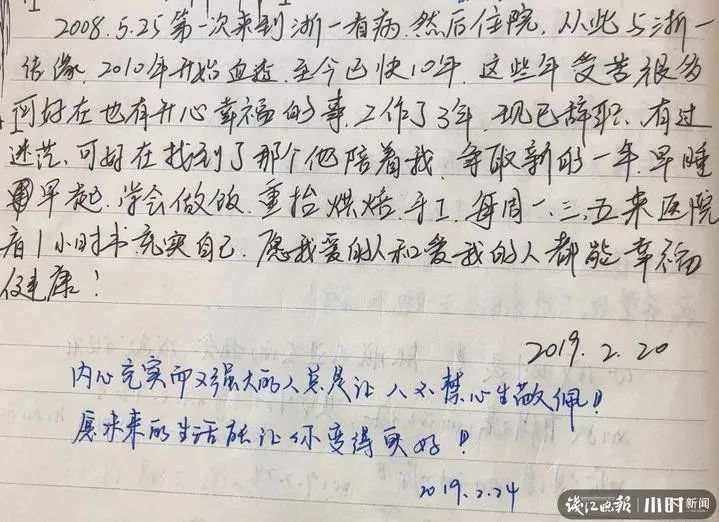 2008.5.25第一次来到浙一看病,然后住院,从此与浙一
结缘,2010年开始血透,至今已快10年,这些年受苦很多
可好在也有开心幸福的事,工作了3年,现已辞职,有过
迷茫,可好在找到了那个他陪着我,争取新的一年,早睡
早起,学会做饭,重拾烘焙,手工,每周一、三、五来医院
看1小时书充实自己,愿我爱的人和爱我的人都能幸福
健康!
2019.2.20
内心充实而又强大的人总是让人不禁心生敬佩!
愿未来的生活能让你变得更好!
2019.2.24
钱江晚报 小时新闻